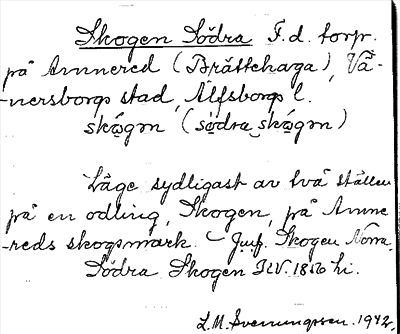 Skogen Södra F.d. torp.
på Annered (Brättehaga), Vä-
-nersborgs stad, Älfsborgs l.
skōgɘn (södra skōgɘn)
Läge sydligast av två ställen
på en odling, Skogen, på Anne-
-reds skogsmark. – Jmf. Skogen Norra.
Södra Skogen Hi.
L.M. Svenungsson. 1942.